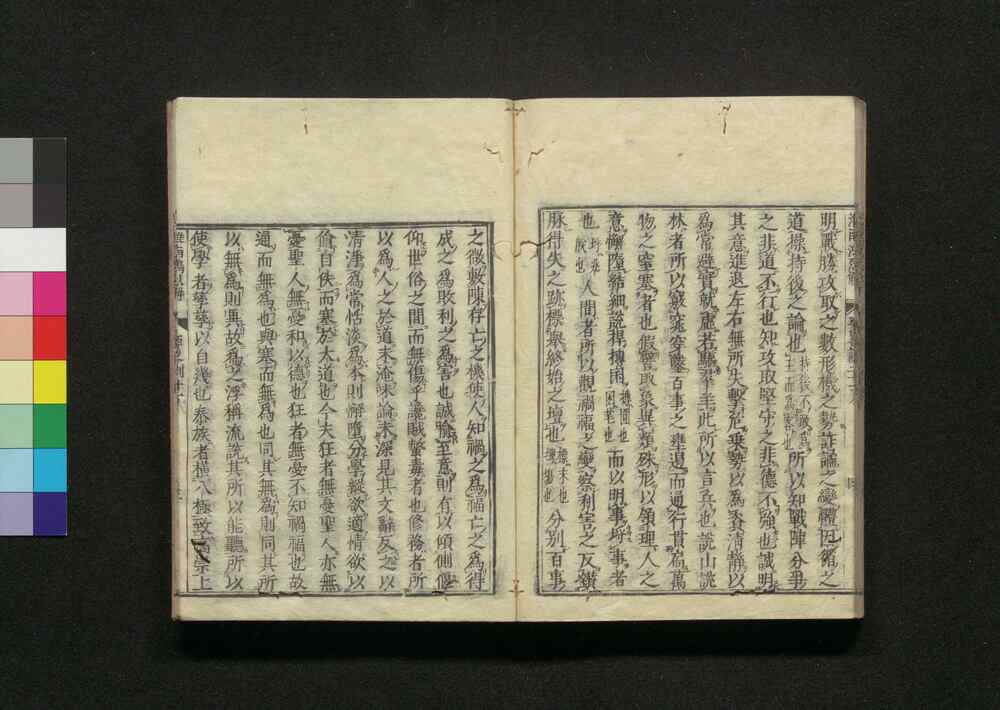 明戰勝攻取之數形機之勢詐譎之變體因循之
道操持後之論也持後不敢為主而為客也所以知戰陣分爭
之非道不行也知攻取堅守之非德不強也誠明
其意進退左右無所失擊危乘勢以為資清靜以
為常避實就虛若驅羣羊此所以言兵也說山說
林者所以竅窕穿鑿百事之壅遏而通行貫扃萬
物之窒塞者也假譬取象異類殊形以領理人之
意懈墮結細說捍摶囷而以明事埒事者
也埒兆朕也人間者所以觀禍福之變察利害之反鑽
脉得失之跡標舉終始之壇也分別百事
之微敷陳存亡之機使人知禍之為福亡之為得
成之為敗利之為害也誠喻至意則有以傾側偃
仰世俗之間而無傷乎讒賊螫毒者也修務者所
以為人之於道未淹味論未深見其文辭反之以
清淨為常恬淡為本則懈墮分學縱欲適情欲以
偷自佚而塞於大道也今夫狂者無憂聖人亦無
憂聖人無憂和以德也狂者無憂不知禍福也故
通而無為也與塞而無為也同其無為則同其所
以無為則異故為之浮稱流說其所以能聽所以
使學者孳孳以自幾也泰族者橫八極致高崇上